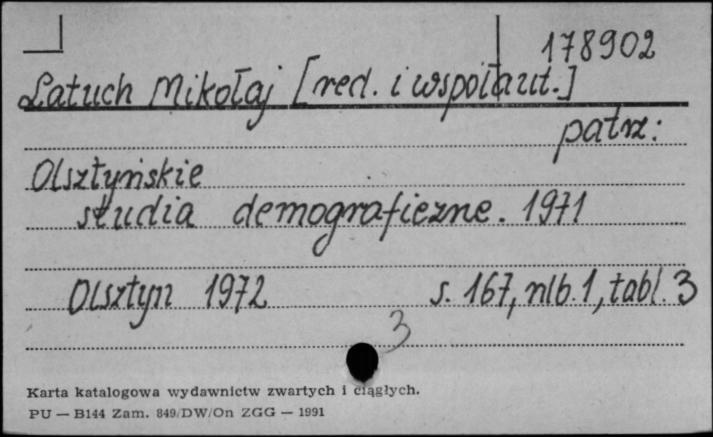 178902
Latuch Mikołaj [red. i współaut.]
patrz:
Olsztyńskie
studia demograficzne. 1971
Olsztyn 1972 s. 167, nlb. 1, tabl. 3
3
Karta katalogowa wydawnictw zwartych i ciągłych.
PU — B144 Zam. 849/DW/On ZGG — 1991